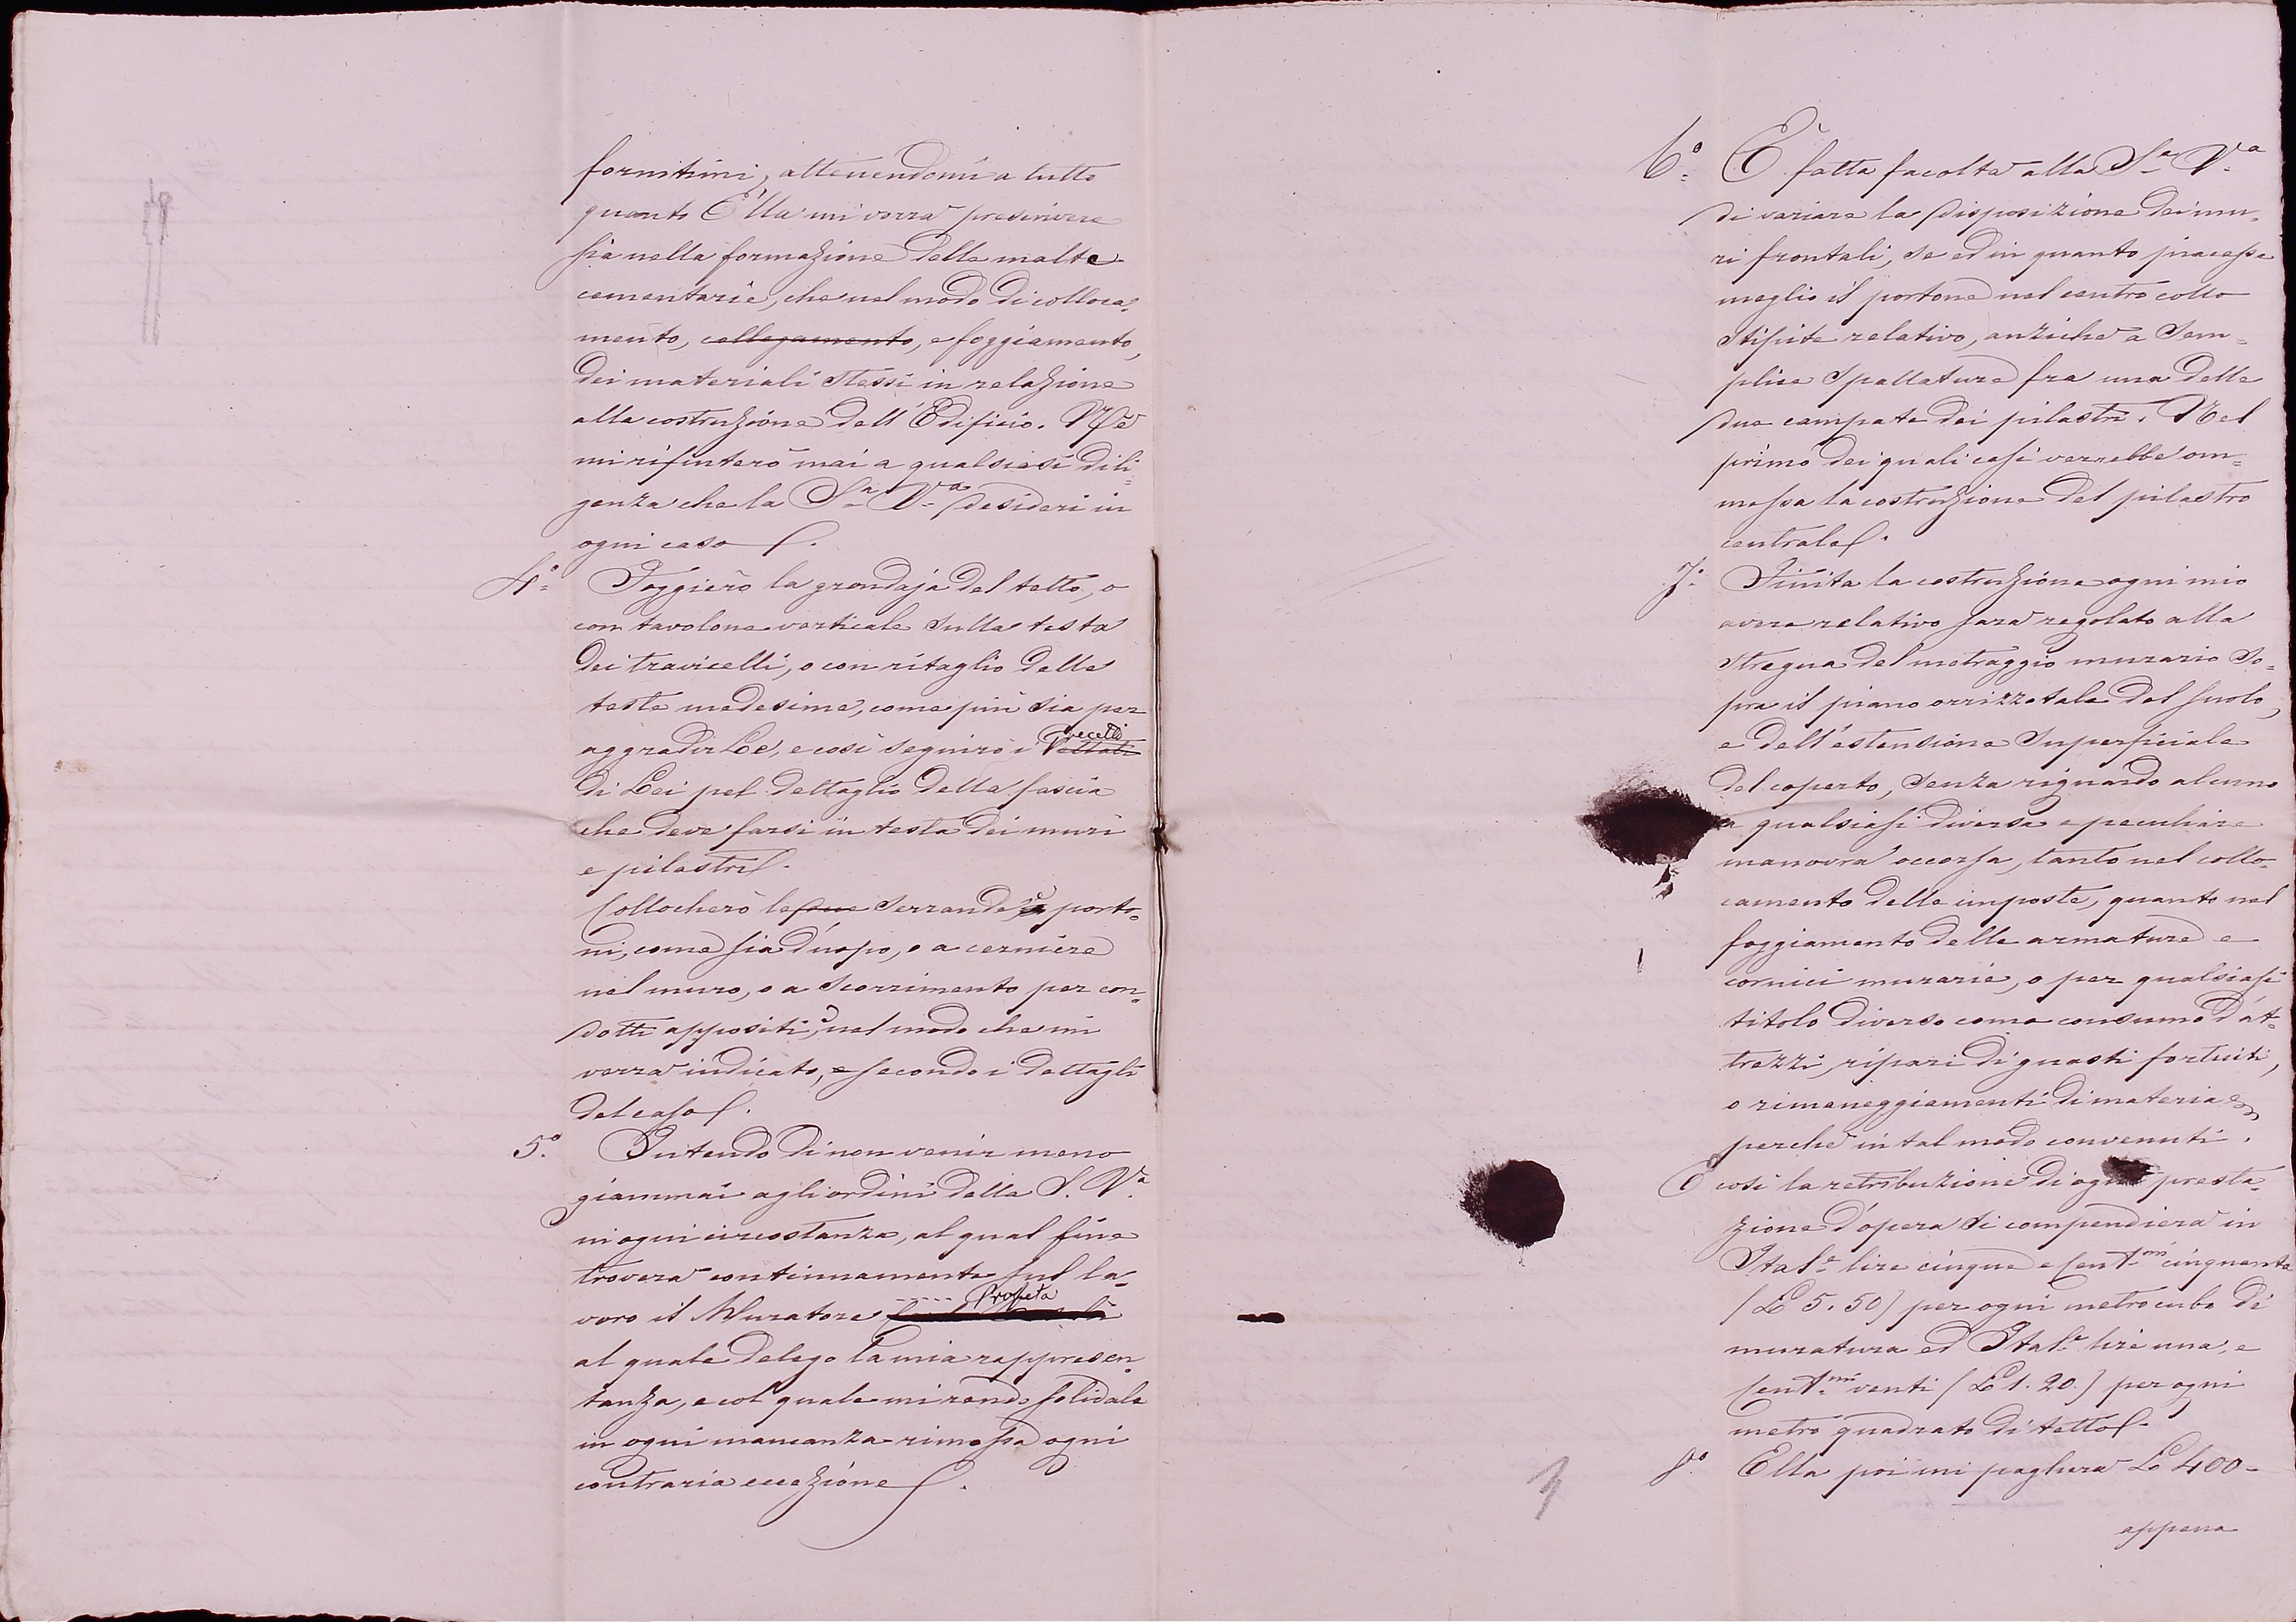 fornitimi, attenendomi a tutto
quanto Ella mi vorrà prescrivere
sia nella formazione delle malte
cementarie, che nel modo di colloca=
mento, collegamento, e foggiamento,
dei materiali stessi in relazione
alla costruzione dell'Edificio. Nè
mi rifiuterò mai a qualsiasi dili=
genza che la S.a V.a desideri in
ogni caso.
4.o Foggierò la grondaja del tetto, o
con tavolone verticale sulla testa
dei travicelli, o con ritaglio delle
teste medesime, come più sia per
aggradirLe, e così seguirò i
di Lei pel dettaglio della fascia
che deve farsi in testa dei muri
e pilastri.
Collocherò le due serrande, e porto=
ni, come sia d'uopo, o a cerniere
nel muro, o a scorrimento per con=
dotti appositi, nel modo che mi
verrà indicato, e secondo i dettagli
del caso.
5.o Intendo di non venir meno
giammai agli ordini della S. V.a
in ogni circostanza, al qual fine
troverà continuamente sul la=
voro il Muratore ..... Profeta
al quale delego la mia rappresen=
tanza, e col quale mi rendo solidale
in ogni mancanza rimossa ogni
contraria eccezione.
6.o È fatta facoltà alla S.a V.a
di variare la disposizione dei mu=
ri frontali, se ed in quanto piacesse
meglio il portone nel centro collo
stipite relativo, anzichè a sem=
plice spallatura fra una delle
due campate dei pilastri. Nel
primo dei quali casi verrebbe om=
messa la costruzione del pilastro
centrale.
7.o Finita la costruzione ogni mio
avere relativo sarà regolato alla
stregua del metraggio murario so=
pra il piano orrizzotale del suolo,
e dell'estensione superficiale
del coperto, senza riguardo alcuno
a qualsiasi diversa e peculiare
manovra occorsa, tanto nel collo=
camento delle imposte, quanto nel
foggiamento delle armature e
cornici murarie, o per qualsiasi
titolo diverso come consumo d'at=
trezzi, ripari di guasti fortuiti,
o rimaneggiamenti di materia
perchè in tal modo convenuti.
E così la retribuzione di ogni presta=
zione d'opera si compendierà in
Ital.e lire cinque e Cent.mi cinquanta
(L 5.50) per ogni metro cubo di
muratura ed Ital.e lire una, e
Cent.mi venti (L 1.20.) per ogni
metro quadrato di tetto.
8.o Ella poi mi pagherà L 400=
appena
3